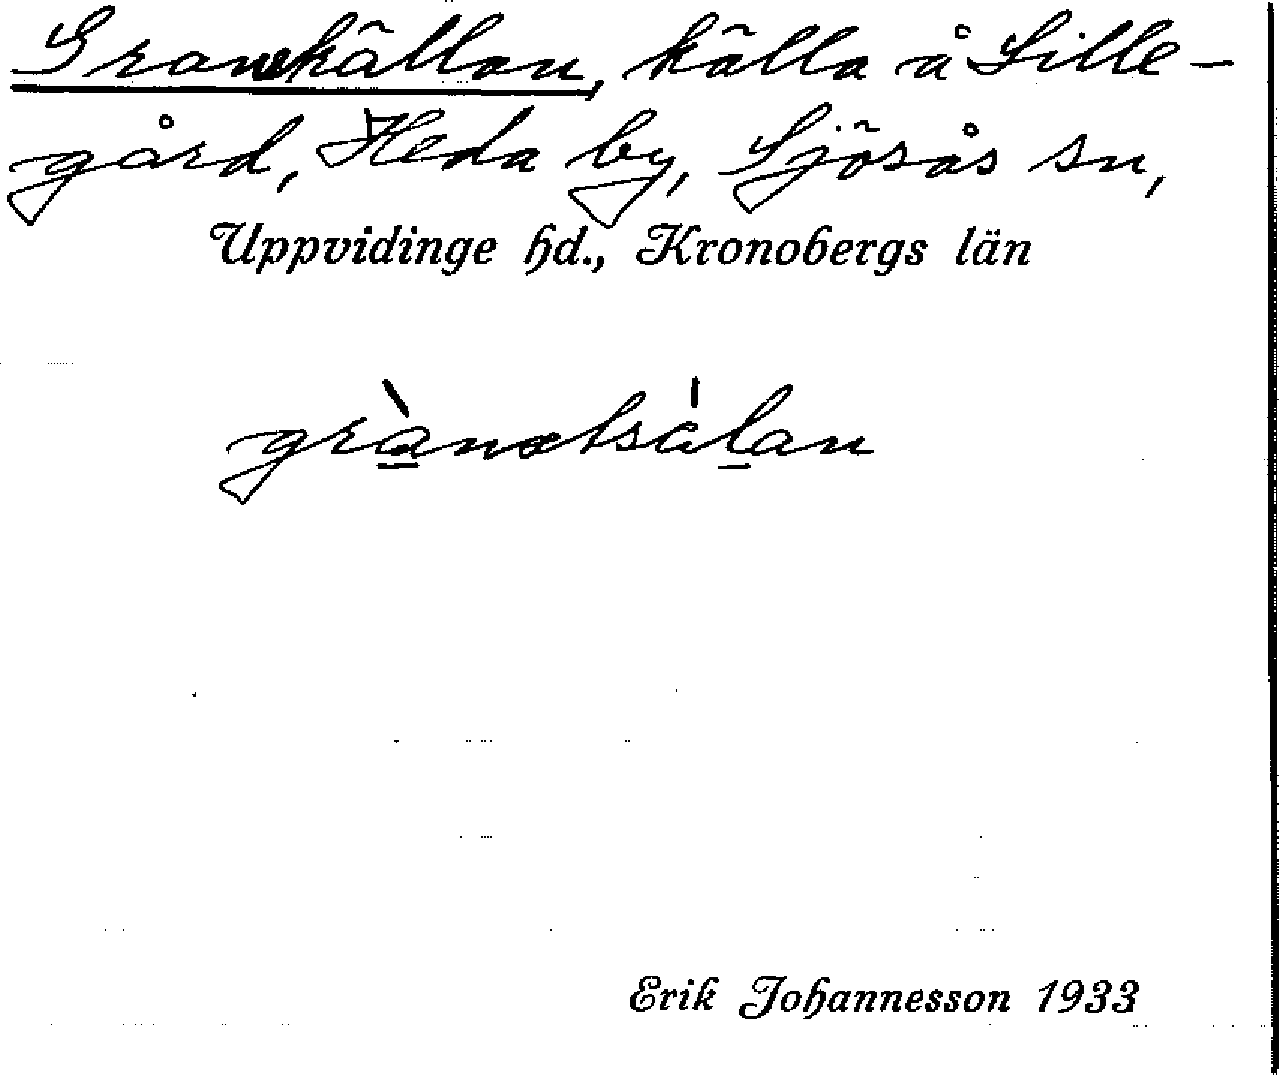 Granekällan, källa å Lille-
gård, Heda by, Sjösås sn,
Uppvidinge hd., Kronobergs län
grànətsàlan
Erik Johannesson 1933